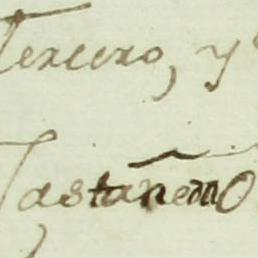 Tercero, y
Castañeno